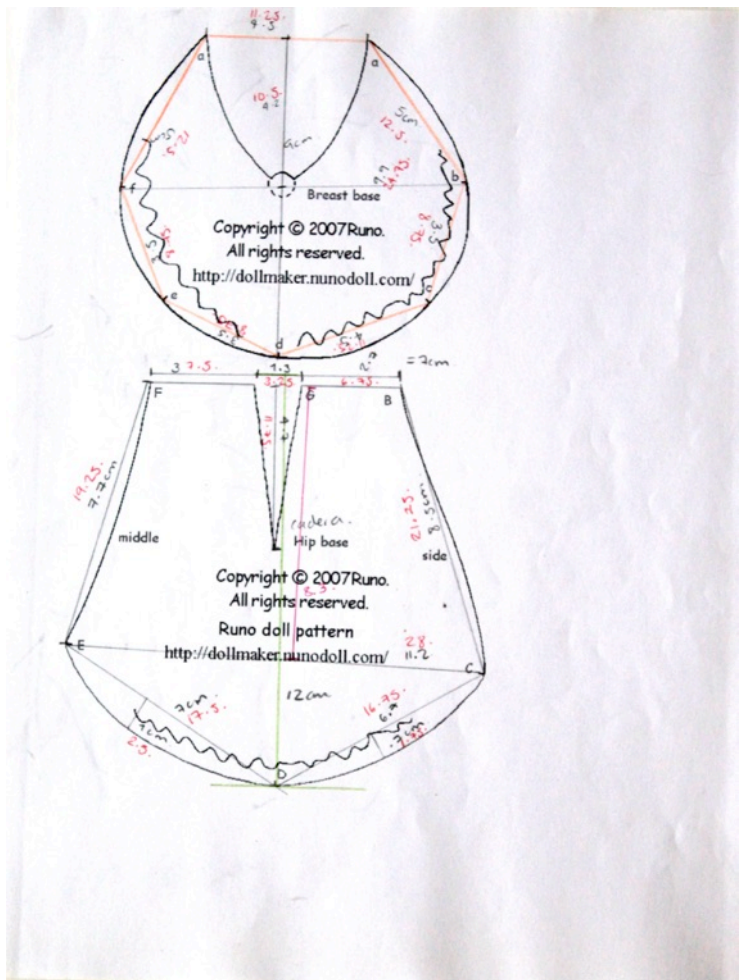 11.25.
4.5
a
a
10.5.
4cm
5cm
12.5.
12.5
5
9.9
24.75.
f
b
Breast base
Copyright © 2007Runo.
All rights reserved.
http://dollmaker.nunodoll.com/
3.5
8.75.
e
c
d
4.5
3 7.5.
1.3
3.25
2.7
6.75.
= 7cm
F
G
B
11.75
4.7
19.25.
7.7cm
21.25.
8.5cm
middle
cadera.
Hip base
side
Copyright © 2007Runo.
All rights reserved.
8.3
Runo doll pattern
28.
11.2
E
http://dollmaker.nunodoll.com/
C
7cm
17.5.
12cm
16.75.
6.7
1cm
2.5.
.7cm
1.75.
D